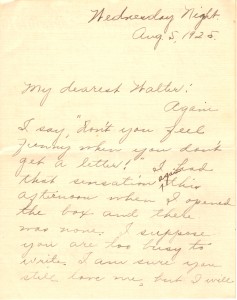 Wednesday Night.
Aug 5, 1925.
My dearest Walter:
Again
I say, "don't you feel
funny when you don't
get a letter!" I had
that sensation again this
afternoon when I opened
the box and there
was none. I suppose
you are too busy to
write. I am sure you
still love me, but I will